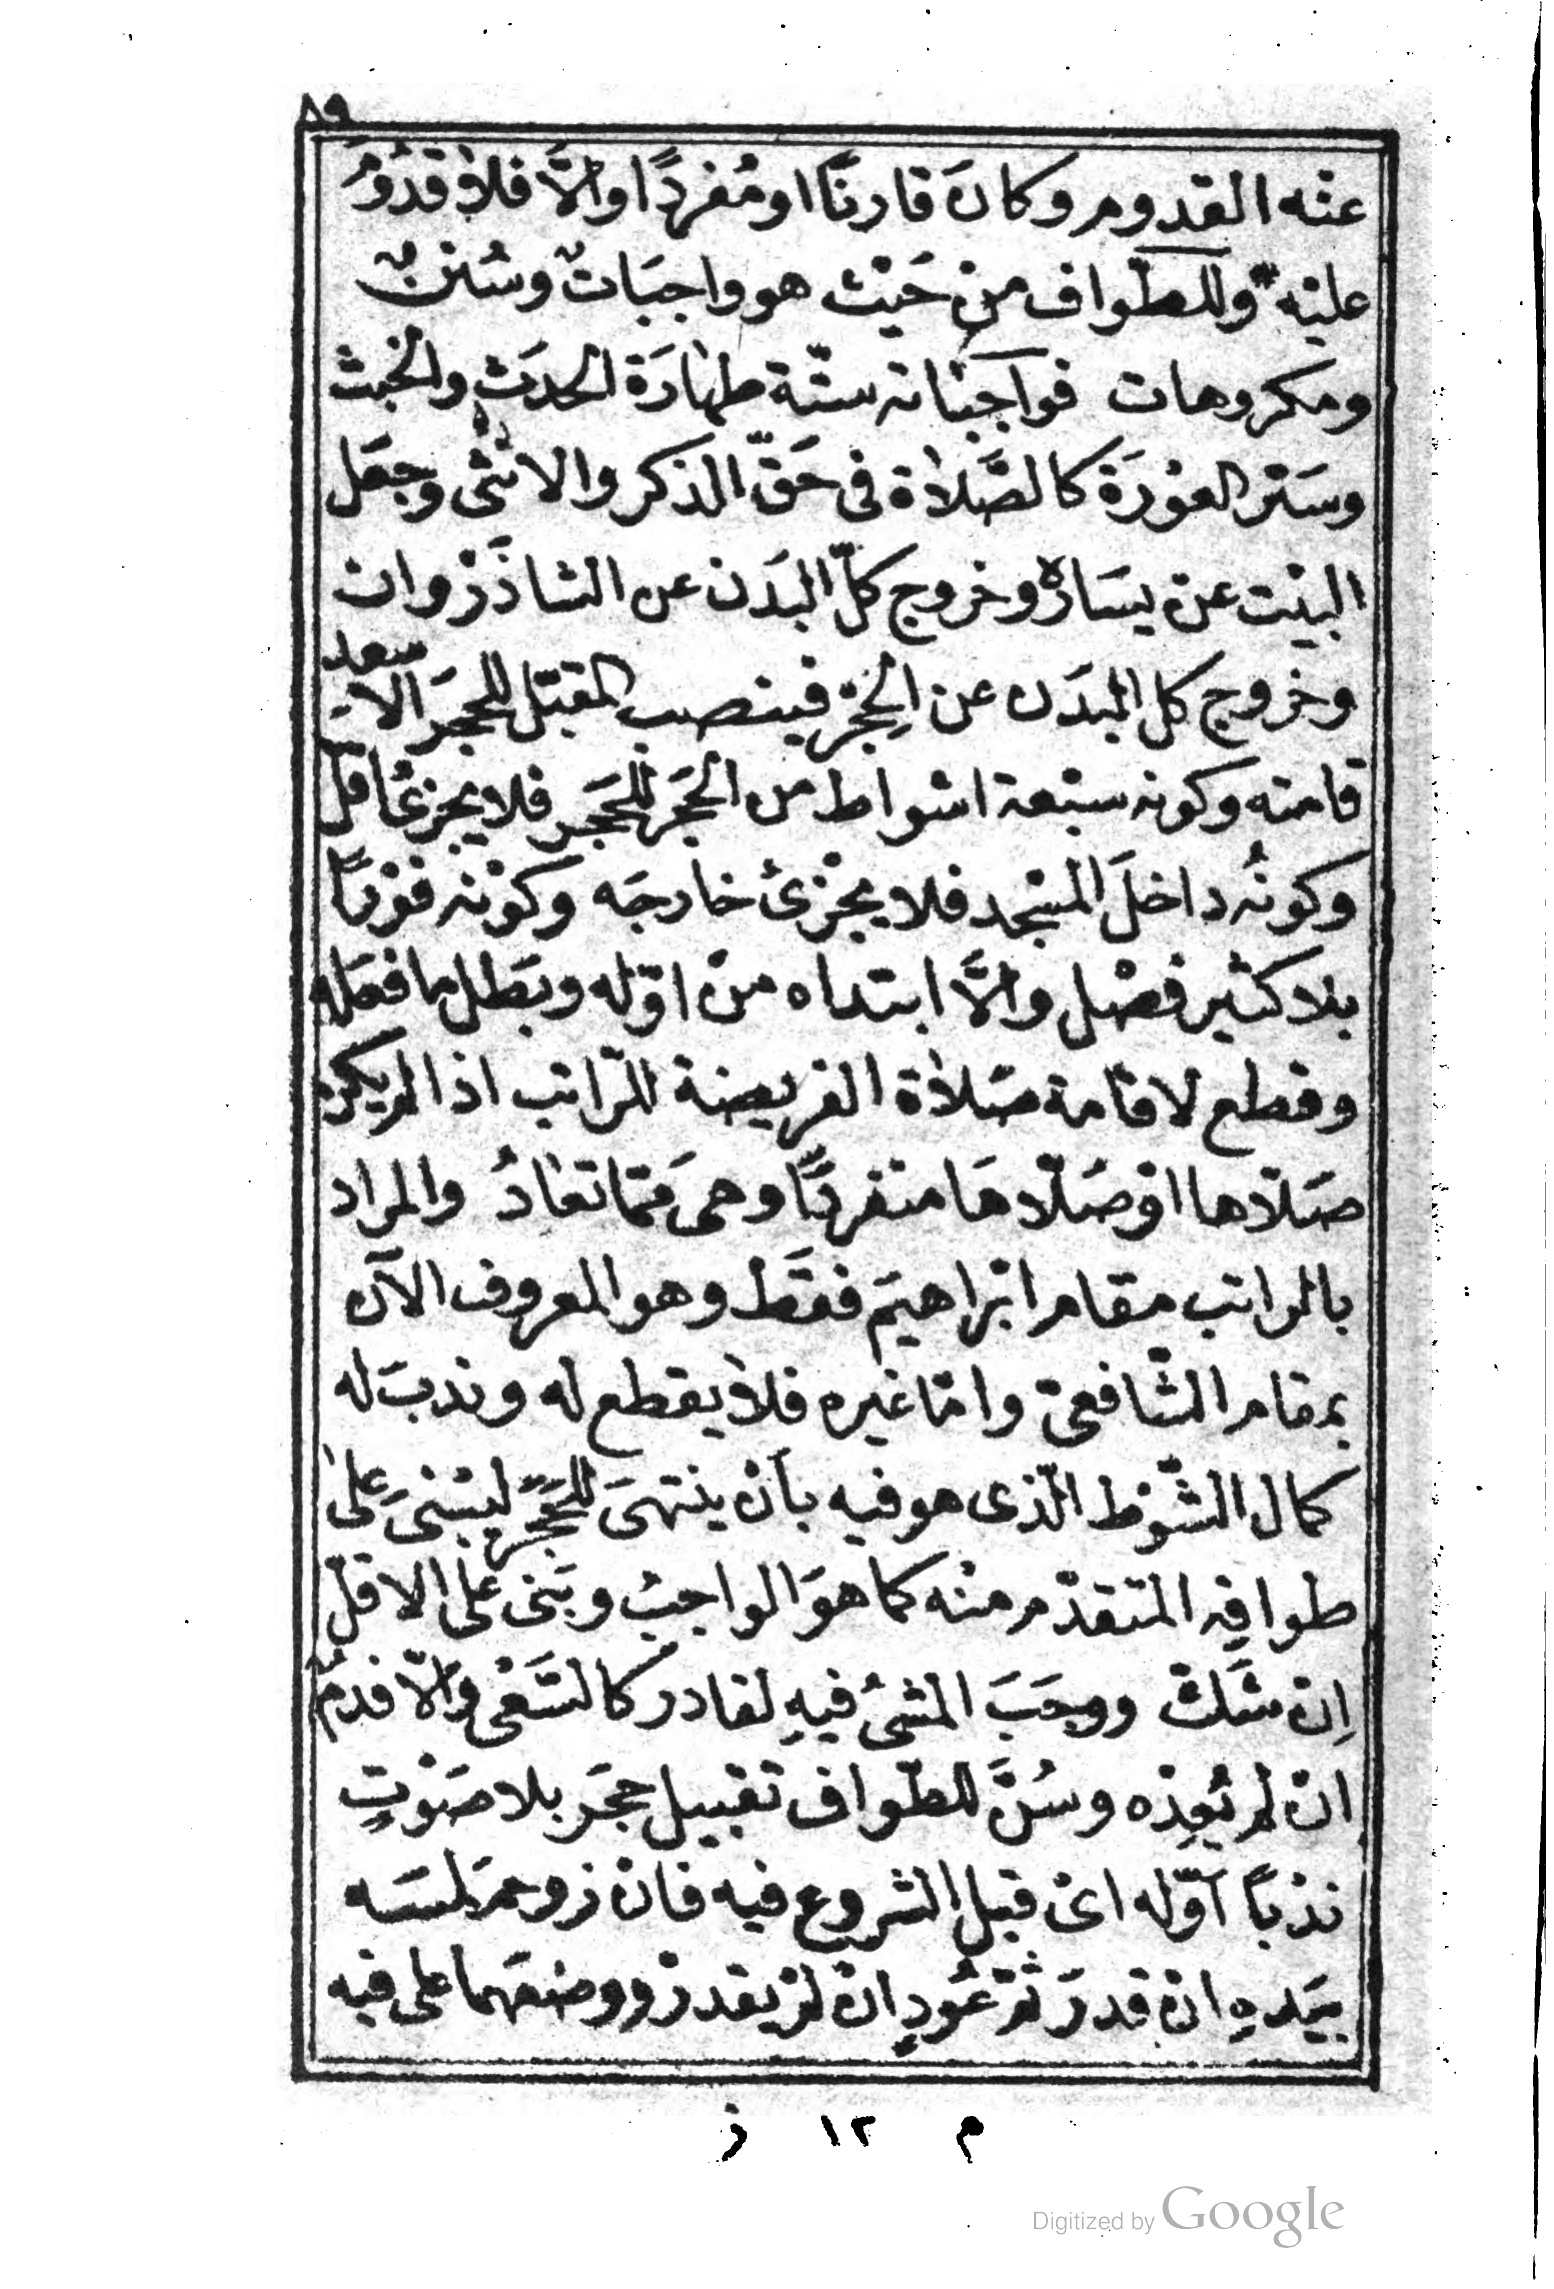 ٨٩
عنْه القدوم وكانَ قارنًا او مُفردًا والَّا فلا قدُومُ
عليْه وللطّواف منْ حَيْث هو واجبَاتٌ وسُننٌ
ومكروهات فواجبَاته ستّة طهارَة الحدَث والخبث
وسَتْر العوْرَة كالصَّلاة فى حَقّ الذكر والانثى وجعَل
البيْت عنْ يسَاره وخروج كلّ البدَن عن الشاذَرْوان
وخروج كل البدَن عن الحِجْر فينصب المقبّل للحجَر الاسعد
قامته وكونه سبْعة اشواط من الحَجَر للحَجَر فلا يجزئُ اقلّ
وكونُه داخلَ المسْجد فلا يجْزئ خارجَه وكوْنه فوْرًا
بلا كثير فصْل والَّا ابتداه منْ اوّله وبَطل ما فعَله
وقطع لاقامة صَلاة الفريضة للرّاتب اذا لم يكن
صَلّاها اوْ صَلّاهَا منفردًا وهىَ ممّا تعَادُ والمراد
بالراتب مقام ابْراهيمَ فقَط وهو المعروف الآن
بمقام الشّافعى وامّا غيره فلا يقطع له وندبَ له
كمال الشّوْط الّذى هو فيه بأنْ ينتهىَ للحَجَر ليبْنىَ عَلى
طوافِه المتقدّم منْه كما هوَ الواجبُ وبَنى على الاقلّ
اِنْ شَكّ ووجَبَ المشىُ فيهِ لقادر كالسَّعْى والّا فدمٌ
انْ لم يُعِدْه وسُنَّ للطّواف تقبيل حجَر بلا صَوْتٍ
ندْبًا اوّله اىْ قبل الشروع فيه فانْ زوحمَ لمسَه
بيَدهِ انْ قدرَ ثمّ عُودٍ انْ لمْ يقدرْ ووضعَهما على فيه
م ١٢ ذ
Digitized by Google